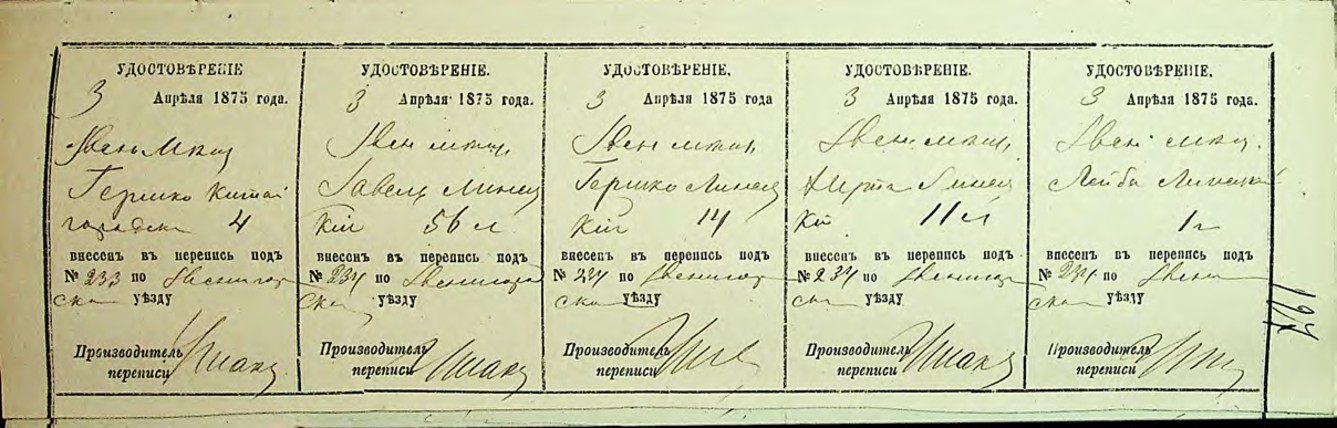 УДОСТОВѢРЕНІЕ
3 Апрѣля 1875 года.
Звен. Мѣщ
Гершко Китай
городск 4
внесенъ въ перепись подъ
№ 233 по Звенигор
ска уѣзду
Производитель
переписи
УДОСТОВѢРЕНІЕ.
3 Апрѣля 1875 года.
Звен мѣщ.
Линец
кій 56 л
внесенъ въ перепись подъ
№ 234 по Звенигор
ска уѣзду
Производитель
переписи
УДОСТОВѢРЕНІЕ.
3 Апрѣля 1875 года
Звен мѣщ.
Гершко Линец
кій 14
внесенъ въ перепись подъ
№ 234 по Звенигор
ска уѣзду
Производитель
переписи
УДОСТОВѢРЕНІЕ.
3 Апрѣля 1875 года.
Звен мѣщ.
Линец
кій 11 л
внесенъ въ перепись подъ
№ 234 по Звенигор
ска уѣзду
Производитель
переписи
УДОСТОВѢРЕНІЕ.
3 Апрѣля 1875 года.
Звен мѣщ.
Лейба Линецкій
1 г
внесенъ въ перепись подъ
№ 234 по Звени
ска уѣзду
Производитель
переписи